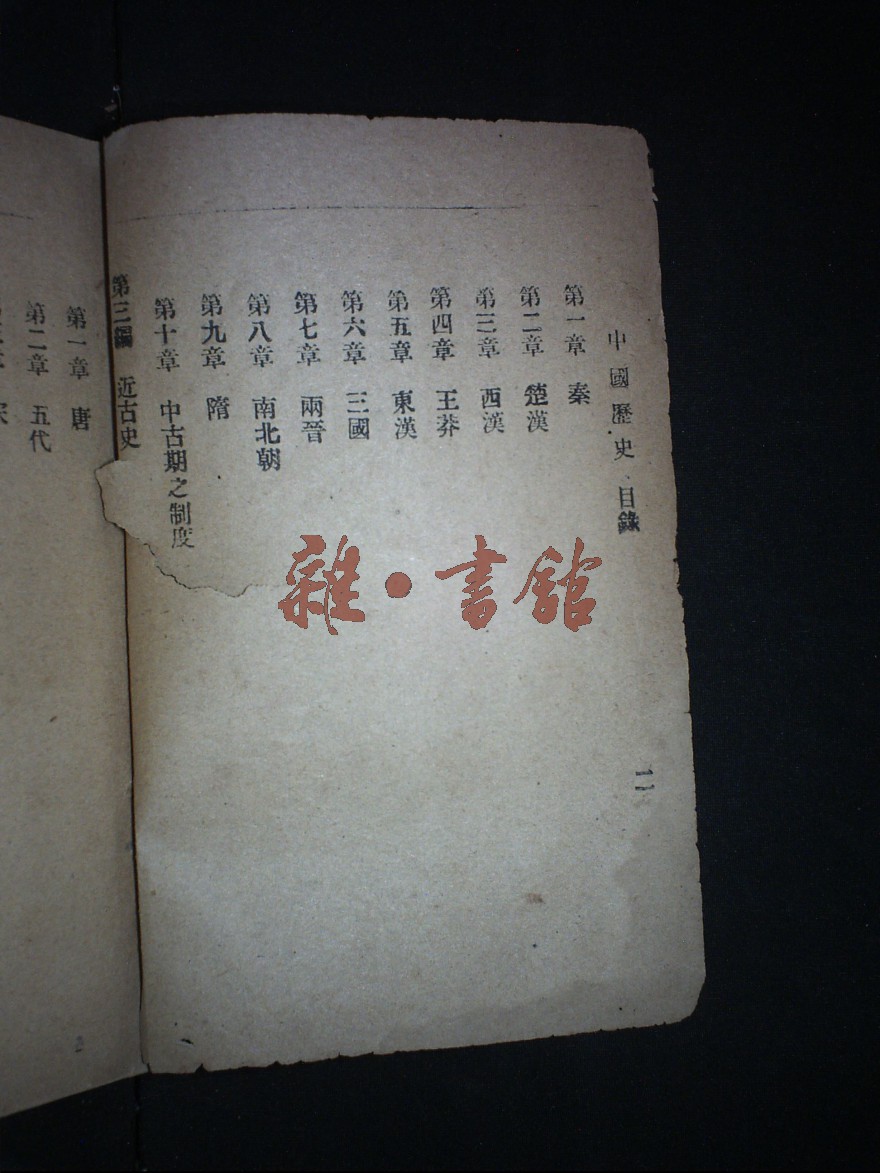 中國歷史 目錄
第一章 秦
第二章 楚漢
第三章 西漢
第四章 王莽
第五章 東漢
第六章 三國
第七章 兩晉
第八章 南北朝
第九章 隋
第十章 中古期之制度
第三編 近古史
第一章 唐
第二章 五代
二
雜·書館